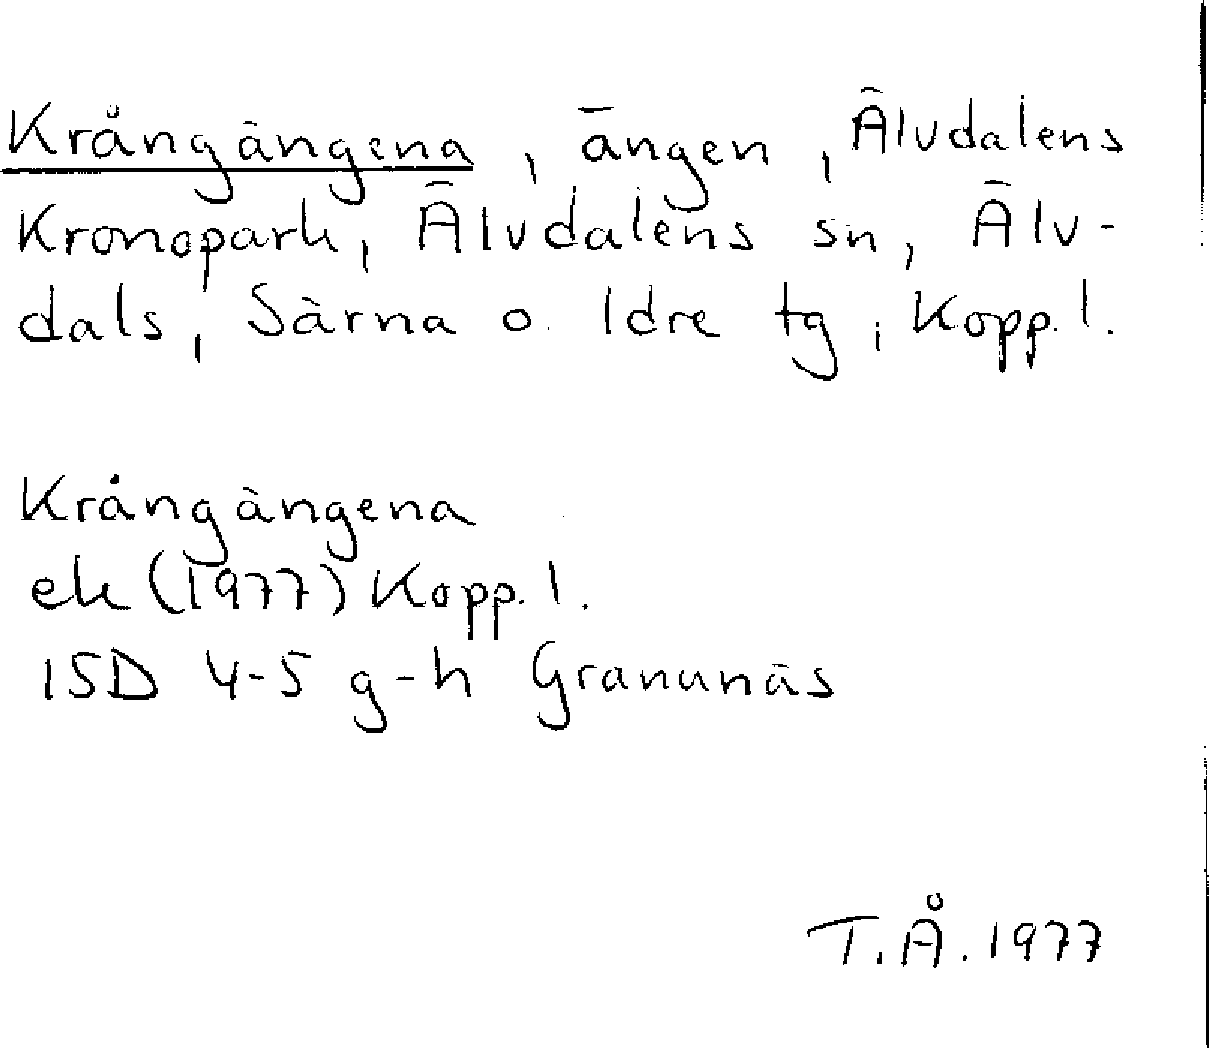 Krångängena, ängen, Älvdalens
Kronopark, Älvdalens sn, Älv-
dals, Särna o. Idre tg, Kopp. l.
Krångängena
ek (1977) Kopp. l.
15D 4-5 g-h Granunäs
T.Å. 1977